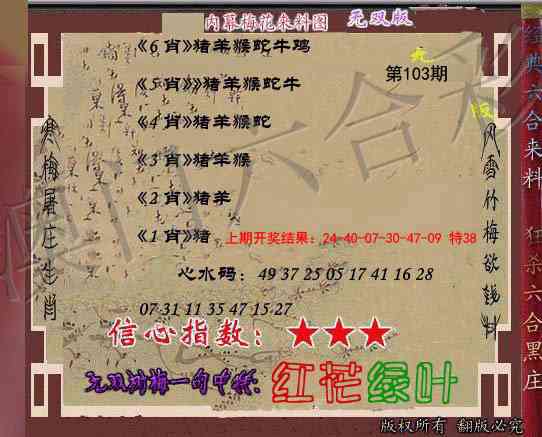 内幕梅花来料图 无双版
《6 肖》猪羊猴蛇牛鸡
第103期
《5 肖》》猪羊猴蛇牛
《4 肖》猪羊猴蛇
《3 肖》猪羊猴
《2 肖》猪羊
《1 肖》猪 上期开奖结果：24-40-07-30-47-09 特38
心水码：49 37 25 05 17 41 16 28
07 31 11 35 47 15 27
信心指数：★★★
无双刘梅一句中特: 红花绿叶
版权所有 翻版必究
寒梅屠庄生肖
风雪竹梅欲钱料
经典六合来料
狂杀六合黑庄
澳门六合彩